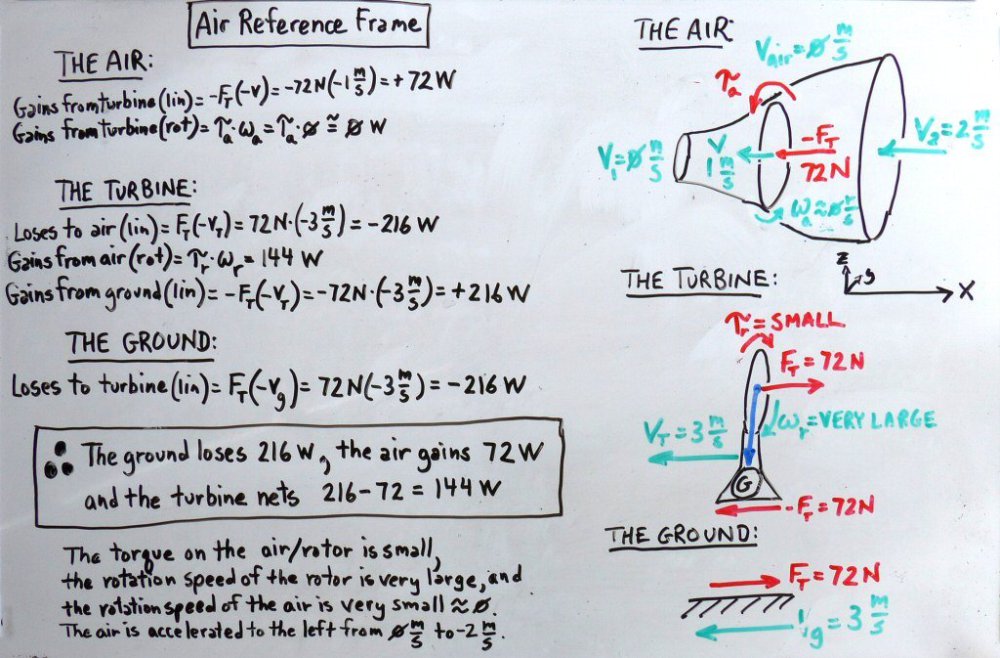 Air Reference Frame
THE AIR:
Gains from turbine (lin) = -F_T(-v) = -72N(-1 m/s) = +72 W
Gains from turbine (rot) = τ_a·ω_a = τ_a·∅ ≅ ∅ W
THE TURBINE:
Loses to air (lin) = F_T(-V_T) = 72N·(-3 m/s) = -216 W
Gains from air (rot) = τ_r·ω_r = 144 W
Gains from ground (lin) = -F_T(-V_T) = -72N·(-3 m/s) = +216 W
THE GROUND:
Loses to turbine (lin) = F_T(-V_g) = 72N(-3 m/s) = -216 W
∴ The ground loses 216 W, the air gains 72 W
and the turbine nets 216-72 = 144 W
The torque on the air/rotor is small,
the rotation speed of the rotor is very large, and
the rotation speed of the air is very small ≈ ∅.
The air is accelerated to the left from ∅ m/s to -2 m/s.
THE AIR:
V_air = ∅ m/s
τ_a
V_1 = ∅ m/s
V
1 m/s
-F_T
72N
V_2 = 2 m/s
ω_a ≈ ∅ r/s
z
y
x
THE TURBINE:
τ_r = SMALL
F_T = 72N
V_T = 3 m/s
ω_r = VERY LARGE
G
-F_T = 72N
THE GROUND:
F_T = 72N
V_g = 3 m/s